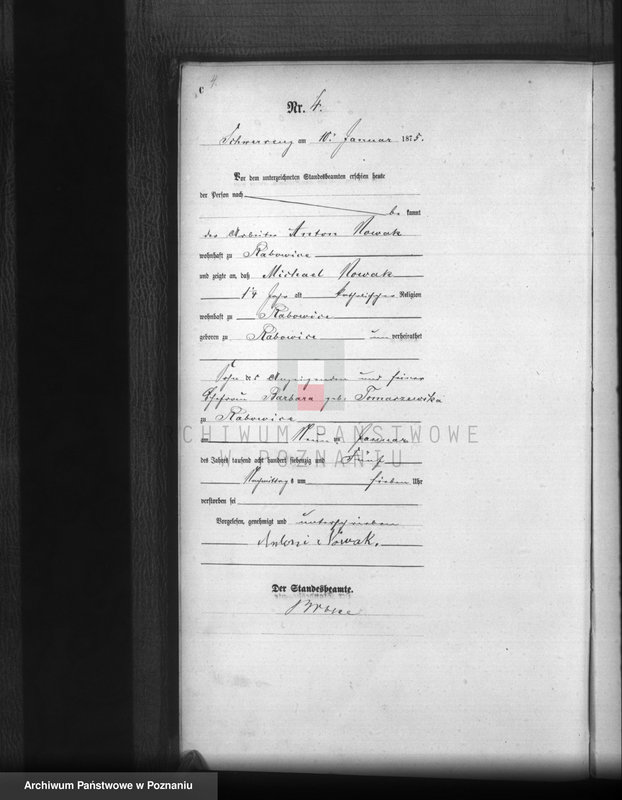 C 4.
Nr. 4.
Schwersenz am 10. Januar 1875.
Vor dem unterzeichneten Standesbeamten erschien heute
der Person nach
be kannt
der Arbeiter Anton Nowak
wohnhaft zu Rabowice
und zeigte an, daß Michael Nowak
14 Jahr alt katholischer Religion
wohnhaft zu Rabowice
geboren zu Rabowice un verheirathet
Sohn des Anzeigenden und seiner
Ehefrau Barbara geb. Tomaszewska
zu Rabowice
am Neunten Januar
des Jahres tausend acht hundert siebenzig und Fünf
Nachmittags um sieben Uhr
verstorben sei
Vorgelesen, genehmigt und unterschrieben
Antoni Nowak.
Der Standesbeamte.
ARCHIWUM PAŃSTWOWE
W POZNANIU
Archiwum Państwowe w Poznaniu